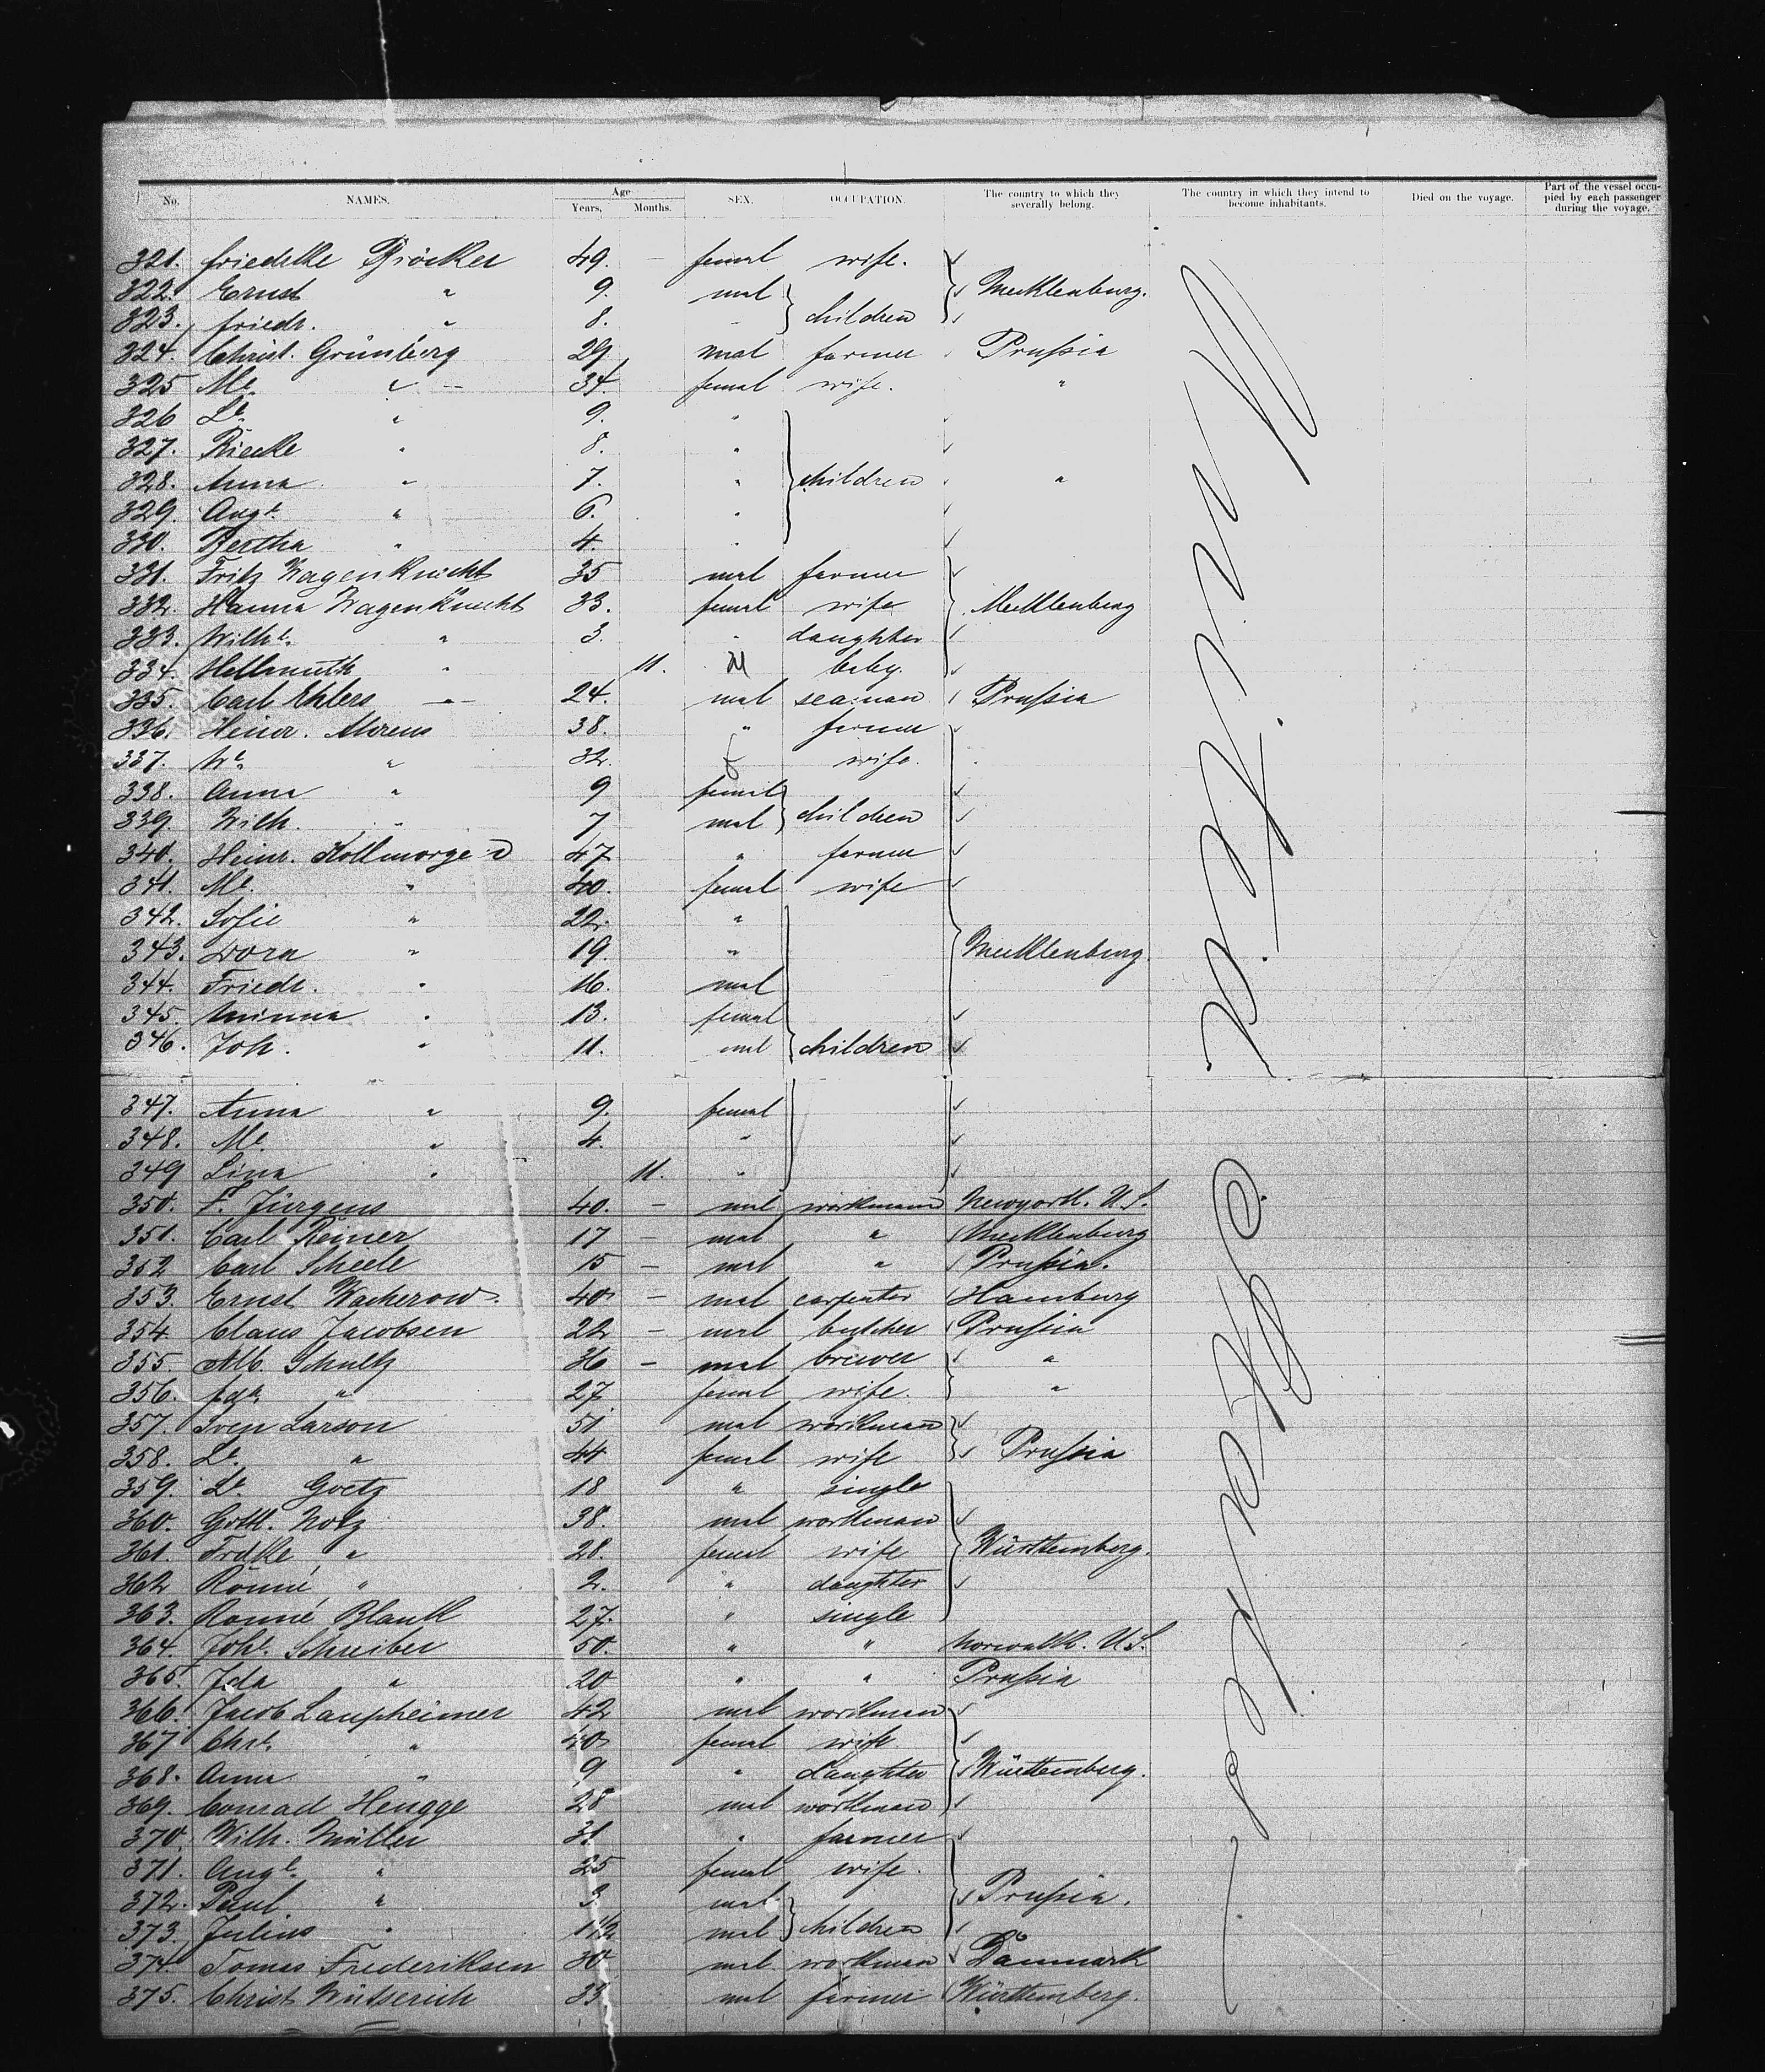 No. NAMES. Age Years, Months. SEX. OCCUPATION. The country to which they severally belong. The country in which they intend to become inhabitants. Died on the voyage. Part of the vessel occupied by each passenger during the voyage.
321. friedrike 49. — femal wife.
322. Ernst " 9. mal Mecklenburg.
323. friedr. " 8. " children
324. Christ. Grünberg 29 mal farmer Prussia
325 Me. " 34. femal wife. "
326 Le. " 9. "
327. Riecke " 8. "
328. Anna " 7. " children "
329. Augt. " 6. "
330. Bertha " 4. "
331. Fritz Wagenknecht 35 mal farmer
332. Hanna Wagenknecht 33. femal wife Mecklenburg
333. Wilhe. " 3. " daughter
334. Hellmuth " 11. M baby.
335. Carl Ehlers 24. mal seaman Prussia
336. Heinr. Ahrens 38. " farmer
337. We. " 32. f wife.
338. Anna " 9 femal
339. Wilh. " 7 mal children
340. Heinr. Kollmorgen 47 " farmer
341. Me. " 40. femal wife
342. Sofie " 22. "
343. Dora " 19. " Mecklenburg.
344. Friedr. " 16. mal
345. Minna " 13. femal
346. Joh. " 11. mal children
347. Anna " 9. femal
348. Me. " 4. "
349 Lina " 11. "
350. F. Jürgens 40. — mal workmann Newyork. U.S.
351. Carl Reiner 17 — mal " Mecklenburg
352 Carl Scheele 15 — mal " Prussia.
353. Ernst Wacherow. 40 — mal carpenter Hamburg
354. Claus Jacobsen 22 — mal butcher Prussia
355. Alb. Schultz 36 — mal brewer "
356. " 27. femal wife. "
357. Sven Larson 51 mal workman
358. Le. " 44 femal wife Prussia
359. Le. Goetz 18 " single
360. Gottl. Notz 38. mal workman
361. Frdke " 28. femal wife Württemberg.
362 " 2. " daughter
363. Blank 27. " single
364. Johe. Schreiber 50. " " Norwalk. U.S.
365. Ida " 20 " " Prussia
366. Jacob Laupheimer 42 mal workman
367 Chrt. " 40 femal wife
368. Anna " 9 " daughter Württemberg.
369. Conrad Hengge 28 mal workman
370. Wilh. Müller 31 " farmer
371. Auge. " 25 femal wife.
372. Paul. " 3 mal Prussia.
373. Julius " 1½ mal children
374. Tomas Frederiksen 30 mal workman Dänmark
375. Christ 33 mal farmer Württemberg.